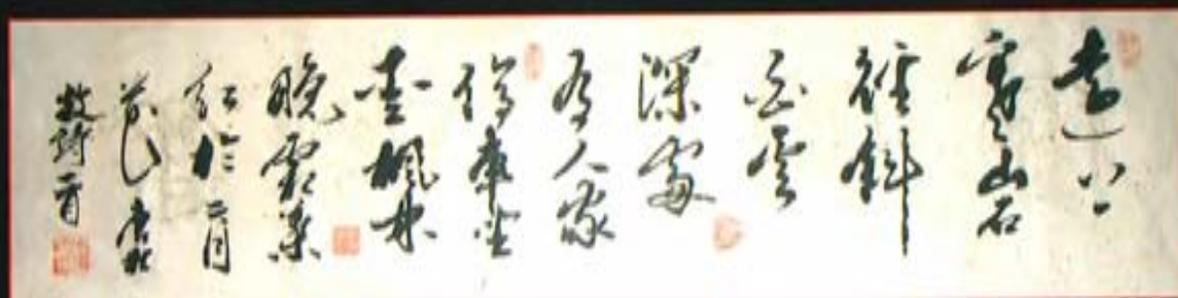 遠上
寒山石
徑斜
白雲
深處
有人家
停車坐
愛楓林
晚霜葉
紅於二月
花 唐杜
牧詩一首